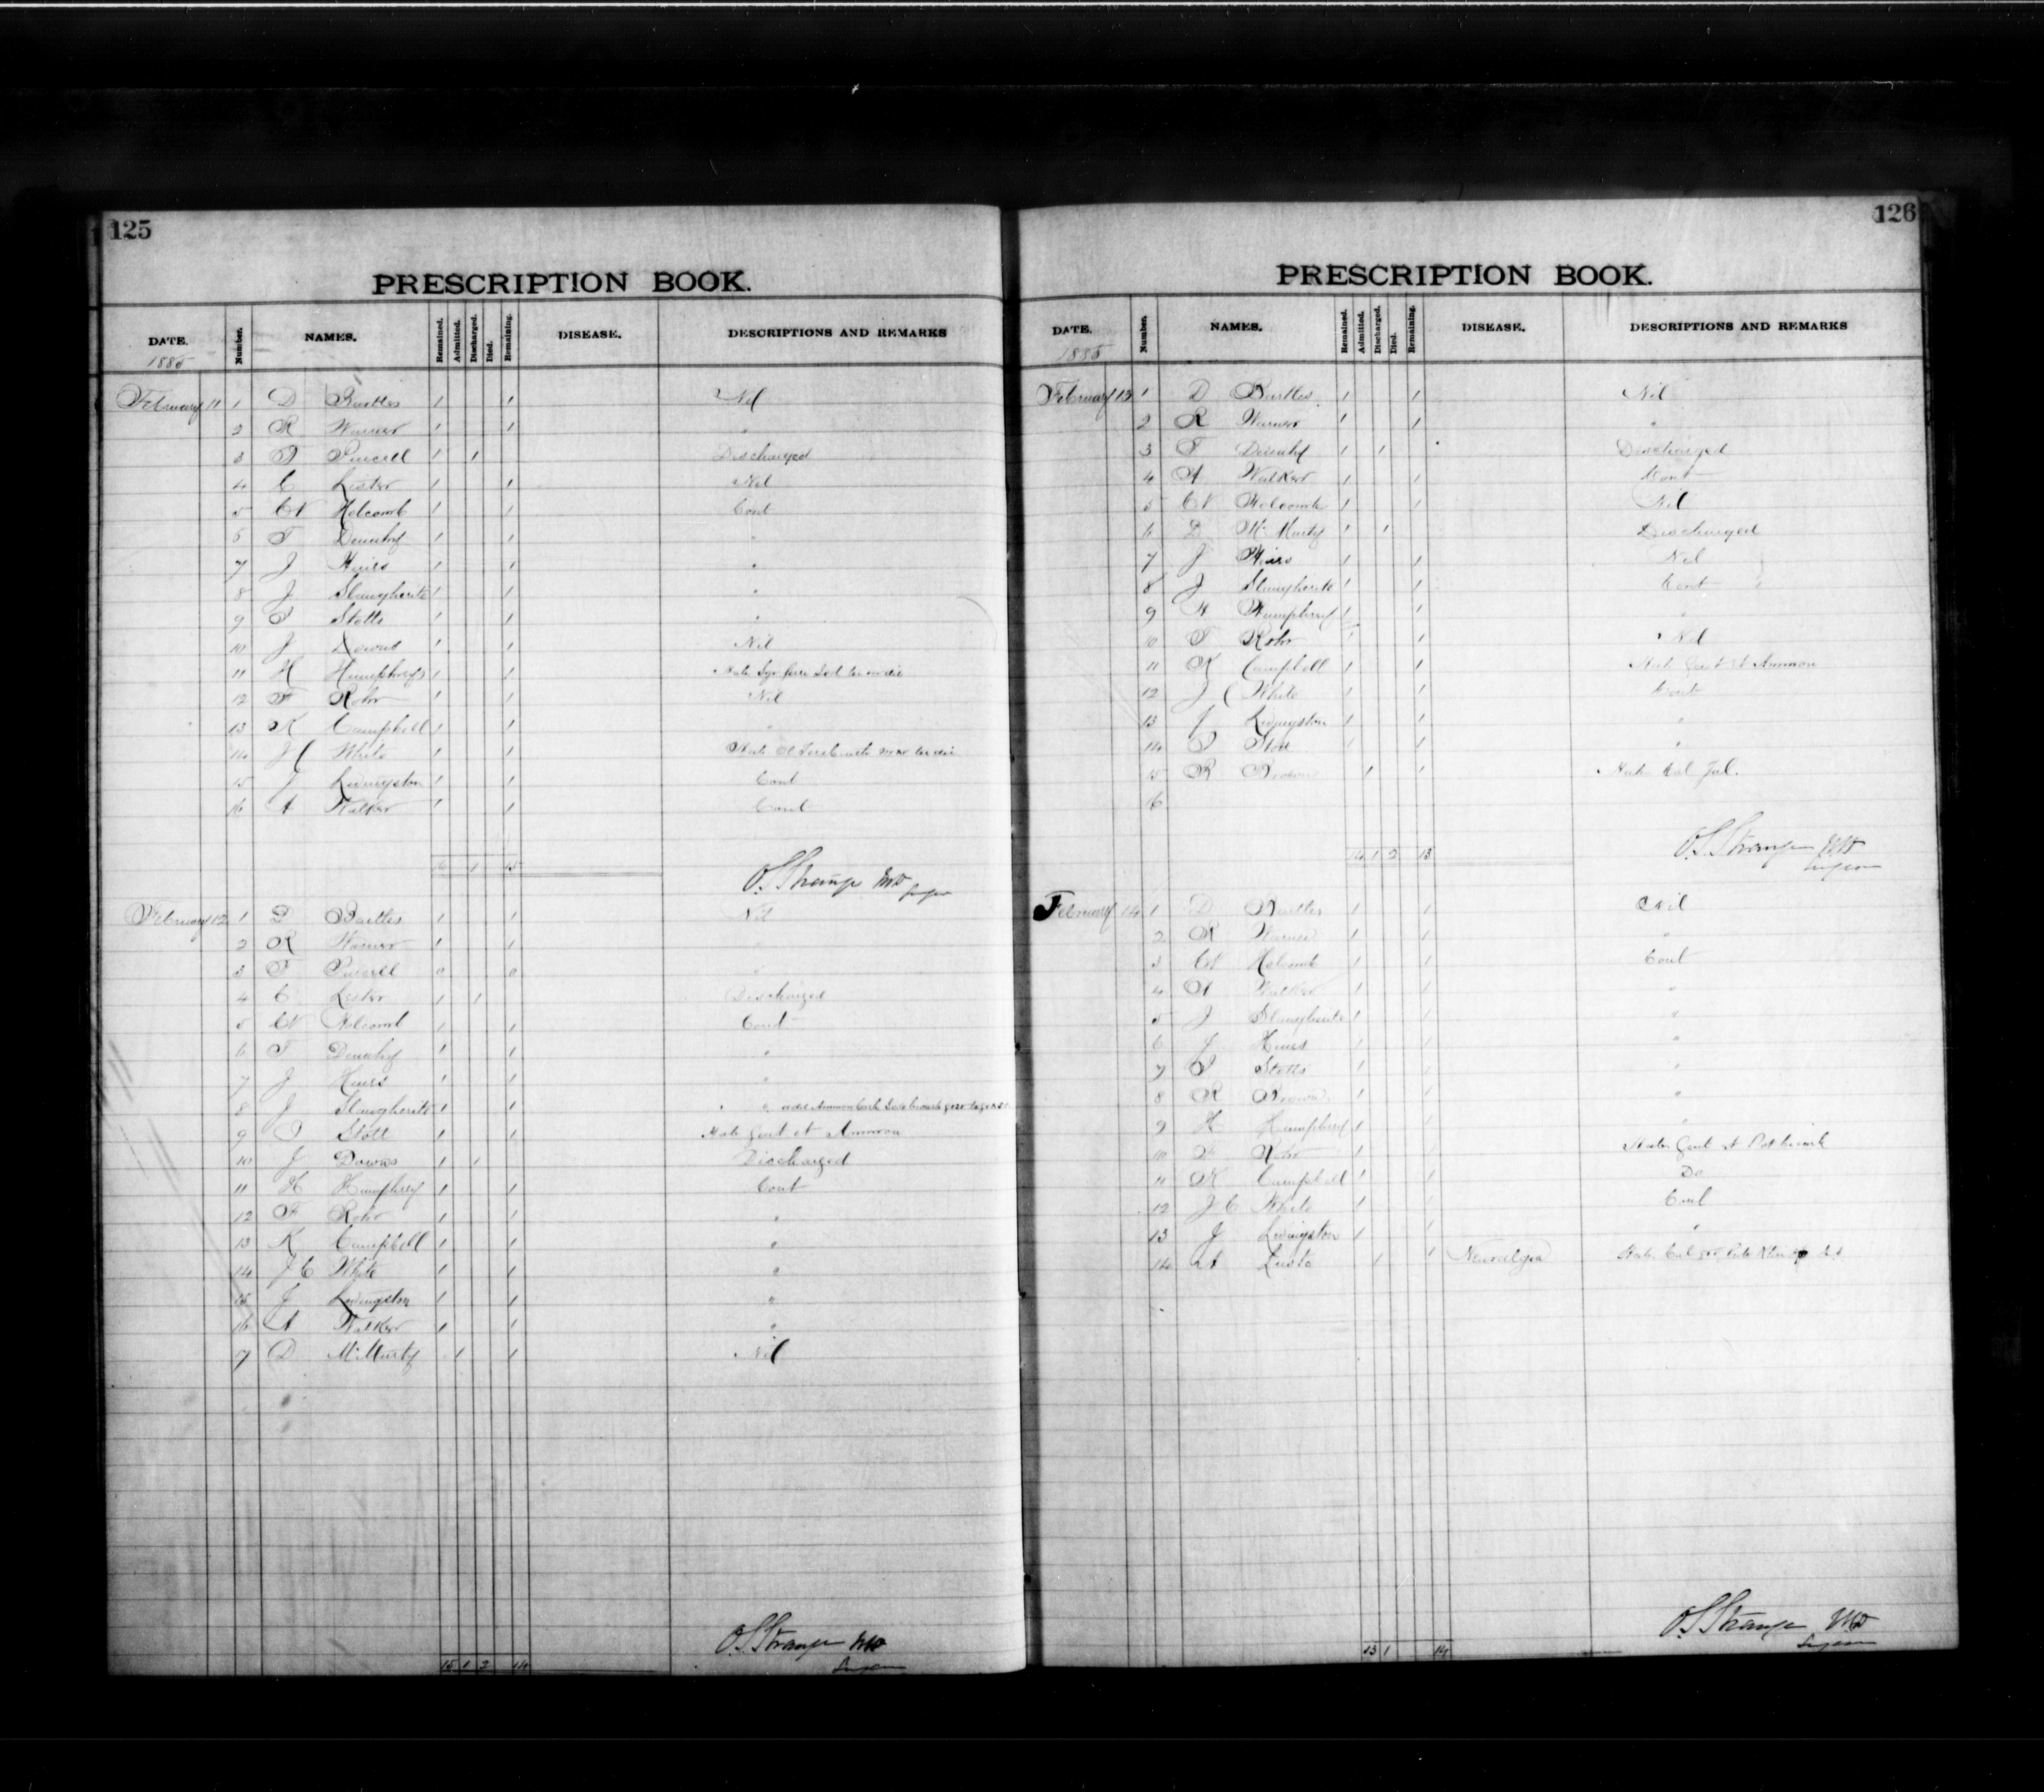 125
PRESCRIPTION BOOK.
DATE. Number. NAMES. Remained. Admitted. Discharged. Died. Remaining. DISEASE. DESCRIPTIONS AND REMARKS
1885
February 11 1 D Bartles 1 1 Nil
2 R Warner 1 1 "
3 Purcell 1 1 Discharged
4 C Lester 1 1 Nil
5 W Holcomb 1 1 Cont
6 T Denehy 1 1 "
7 J Hines 1 1 "
8 J Slaugherite 1 1 "
9 Stotts 1 1 "
10 J Downs 1 1 Nil
11 H Humphreys 1 1
12 F Rohr 1 1 Nil
13 K Campbell 1 1 "
14 J C White 1 1
15 J Livingston 1 1 Cont
16 A Walker 1 1 Cont
16 1 15
O. S. Strange MD
Surgeon
February 12 1 D Bartles 1 1 Nil
2 R Warner 1 1 "
3 Purcell 0 0 "
4 C Lester 1 1 Discharged
5 W Holcomb 1 1 Cont
6 T Denehy 1 1 "
7 J Hines 1 1 "
8 J Slaugherite 1 1 "
9 Stott 1 1 et Ammon
10 J Downs 1 1 Discharged
11 H Humphrey 1 1 Cont
12 F Rohr 1 1 "
13 K Campbell 1 1 "
14 J C White 1 1 "
15 J Livingston 1 1 "
16 A Walker 1 1 "
7 D McMurty 1 1 Nil
15 1 2 14
O. S. Strange MD
Surgeon
126
PRESCRIPTION BOOK.
DATE. Number. NAMES. Remained. Admitted. Discharged. Died. Remaining. DISEASE. DESCRIPTIONS AND REMARKS
1885
February 13 1 D Bartles 1 1 Nil
2 R Warner 1 1 "
3 T Denehy 1 1 Discharged
4 A Walker 1 1 Cont
5 W Holcomb 1 1 Nil
6 D McMurty 1 1 Discharged
7 J Hines 1 1 Nil
8 J Slaugherite 1 1 Cont
9 H Humphrey 1 1 "
10 F Rohr 1 1 Nil
11 K Campbell 1 1 et Ammon
12 J C White 1 1 Cont
13 J Livingston 1 1 "
14 Stott 1 1 "
15 R Brown 1 1
16
14 1 2 13
O. S. Strange MD
Surgeon
February 14 1 D Bartles 1 1 Nil
2 R Warner 1 1 "
3 W Holcomb 1 1 Cont
4 A Walker 1 1 "
5 J Slaugherite 1 1 "
6 J Hines 1 1 "
7 Stotts 1 1 "
8 R Brown 1 1 "
9 H Humphrey 1 1 "
10 F Rohr 1 1
11 K Campbell 1 1 Do
12 J C White 1 1 Cont
13 J Livingston 1 1 "
14 A 1 1 Neuralgia
13 1 14
O. S. Strange MD
Surgeon